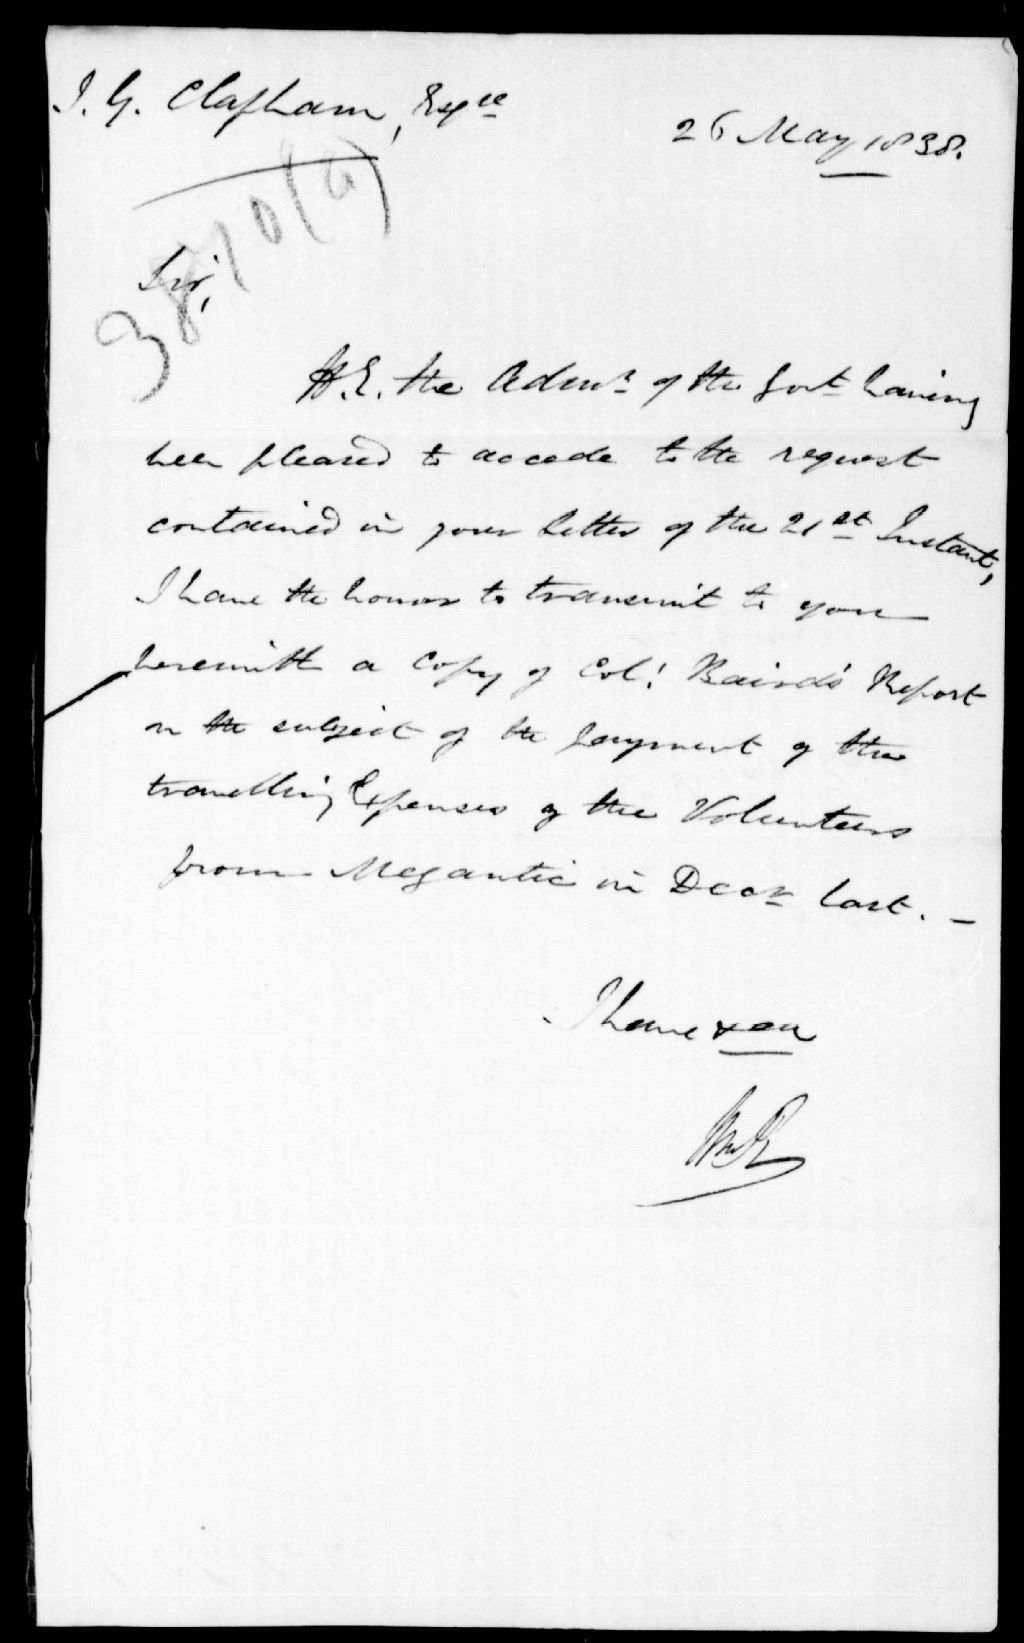 J. G. Clapham, Esqre
26 May 1838.
3810(a)
Sir,
H.E. the Admr of the Govt having
been pleased to accede to the request
contained in your letter of the 21st Instant,
I have the honor to transmit to you
herewith a Copy of Col: Baird's Report
on the subject of the payment of the
travelling Expenses of the Volunteers
from Megantic in Decr last. —
I have &ca